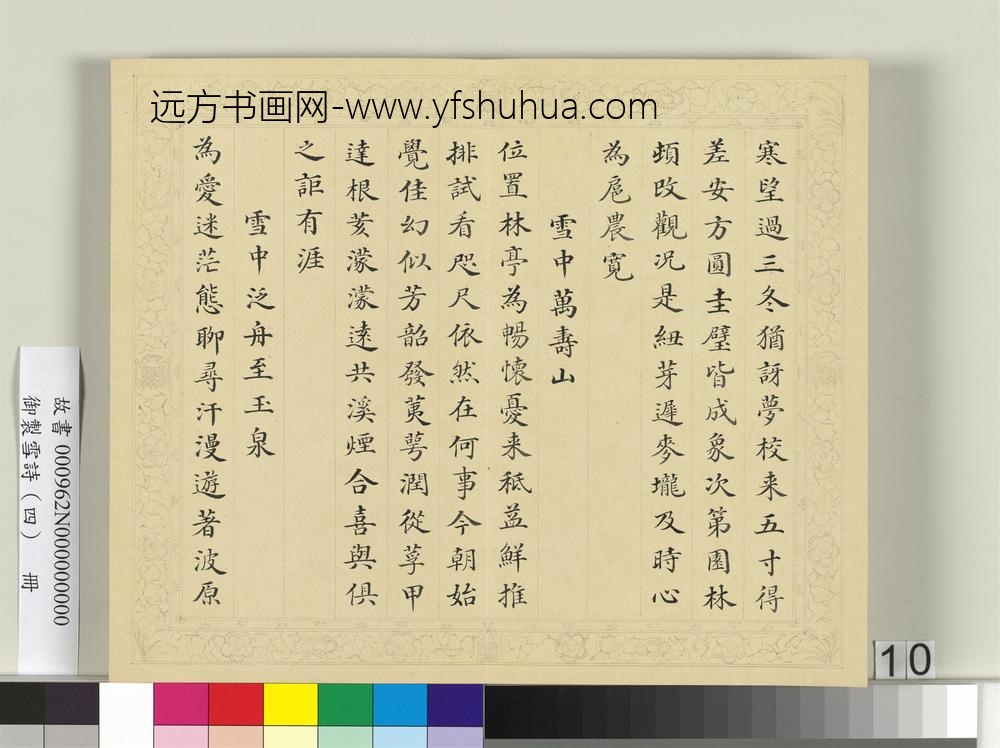 远方书画网-www.yfshuhua.com
寒望過三冬猶訝夢校来五寸得
差安方圓圭璧皆成象次第園林
頓改觀况是紐芽遲麥壠及時心
為扈農寬
雪中萬壽山
位置林亭為暢懷憂来秪益鮮推
排試看咫尺依然在何事今朝始
覺佳幻似芳韶發萬萼潤從莩甲
達根荄濛濛逺共溪煙合喜與俱
之詎有涯
雪中泛舟至玉泉
為愛迷茫態聊尋汗漫遊著波原
故書 000962N000000000
御製雪詩（四） 冊
10